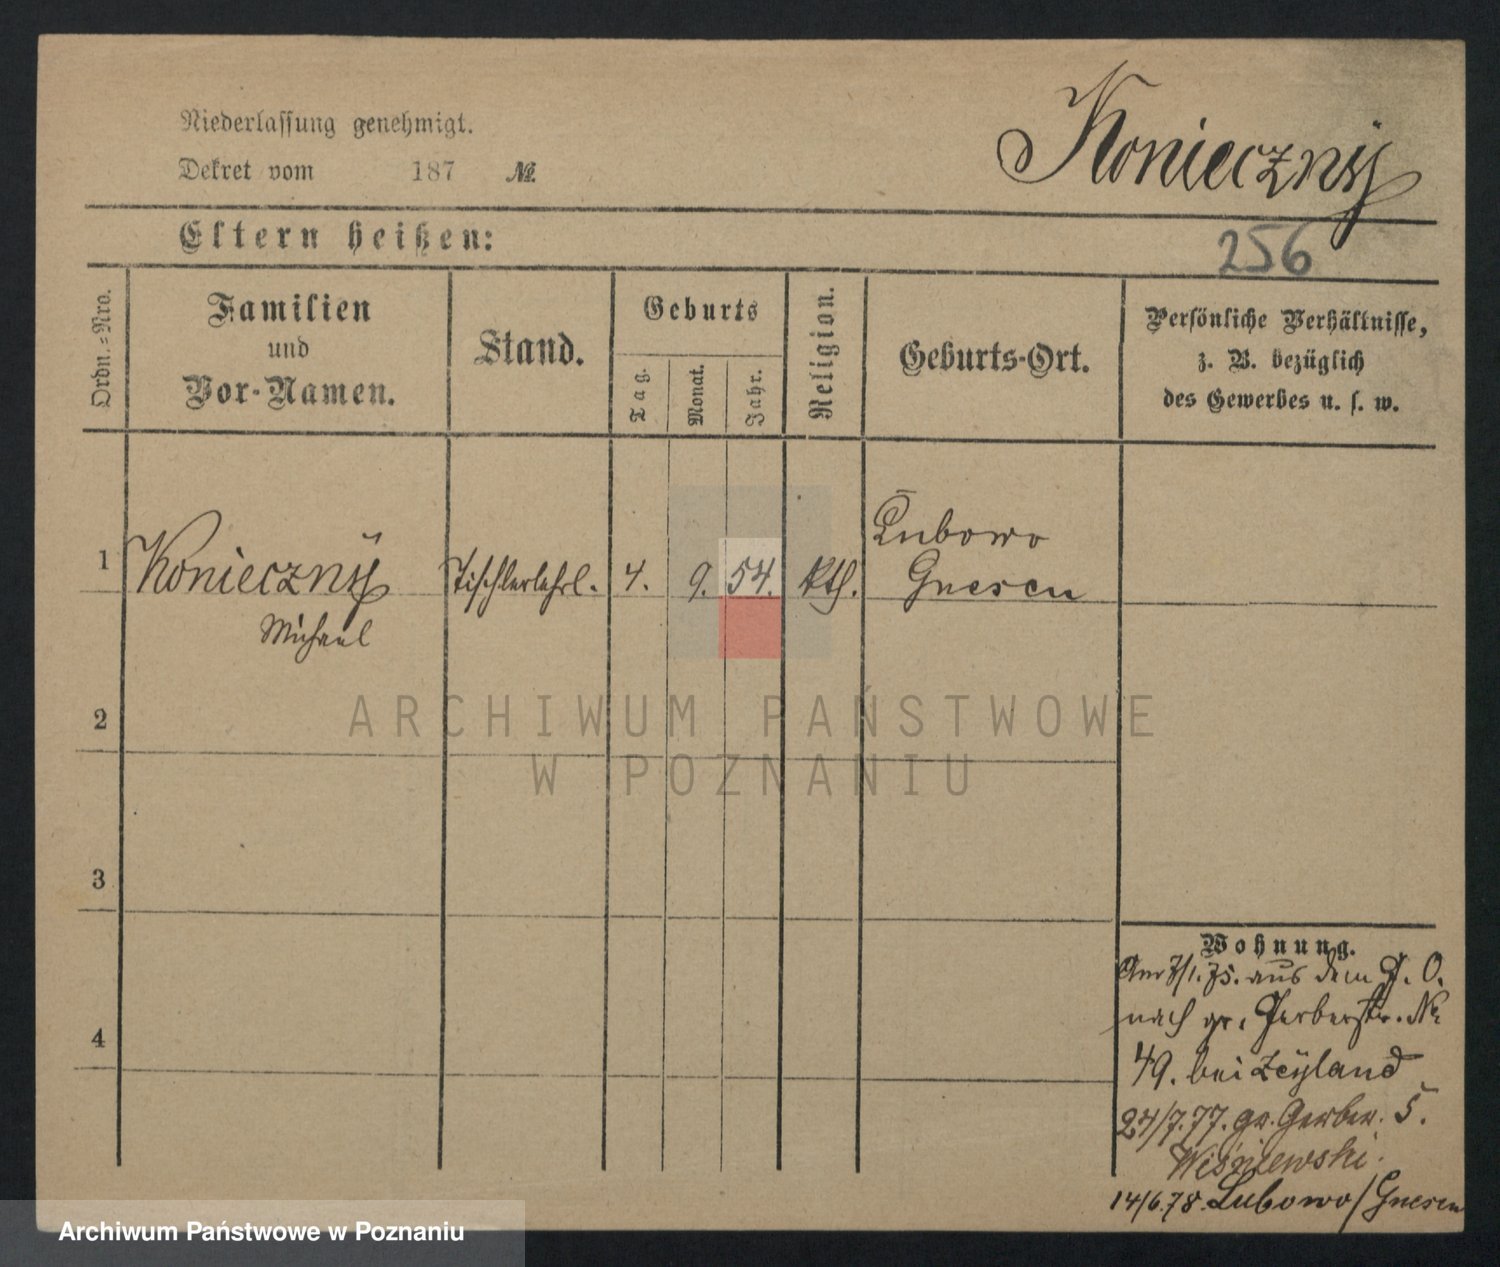 Niederlassung genehmigt.
Dekret vom 187 №
Konieczny
Eltern heißen:
256
Ordn.-Nro.
Familien
und
Vor-Namen.
Stand.
Geburts
Tag.
Monat.
Jahr.
Religion.
Geburts-Ort.
Persönliche Verhältnisse,
z. B. bezüglich
des Gewerbes u. s. w.
1 Konieczny Tischlerlehrl. 4. 9. 54. kth. Lubowo
Gnesen
Michael
ARCHIWUM PAŃSTWOWE
W POZNANIU
2
3
4
Wohnung.
Am 7/1. 75. aus dem P. O.
nach gr. Gerberstr. №
49. bei Zeyland
24/7. 77. gr. Gerber. 5.
Wiśniewski.
14/6. 78. Lubowo/Gnesen
Archiwum Państwowe w Poznaniu